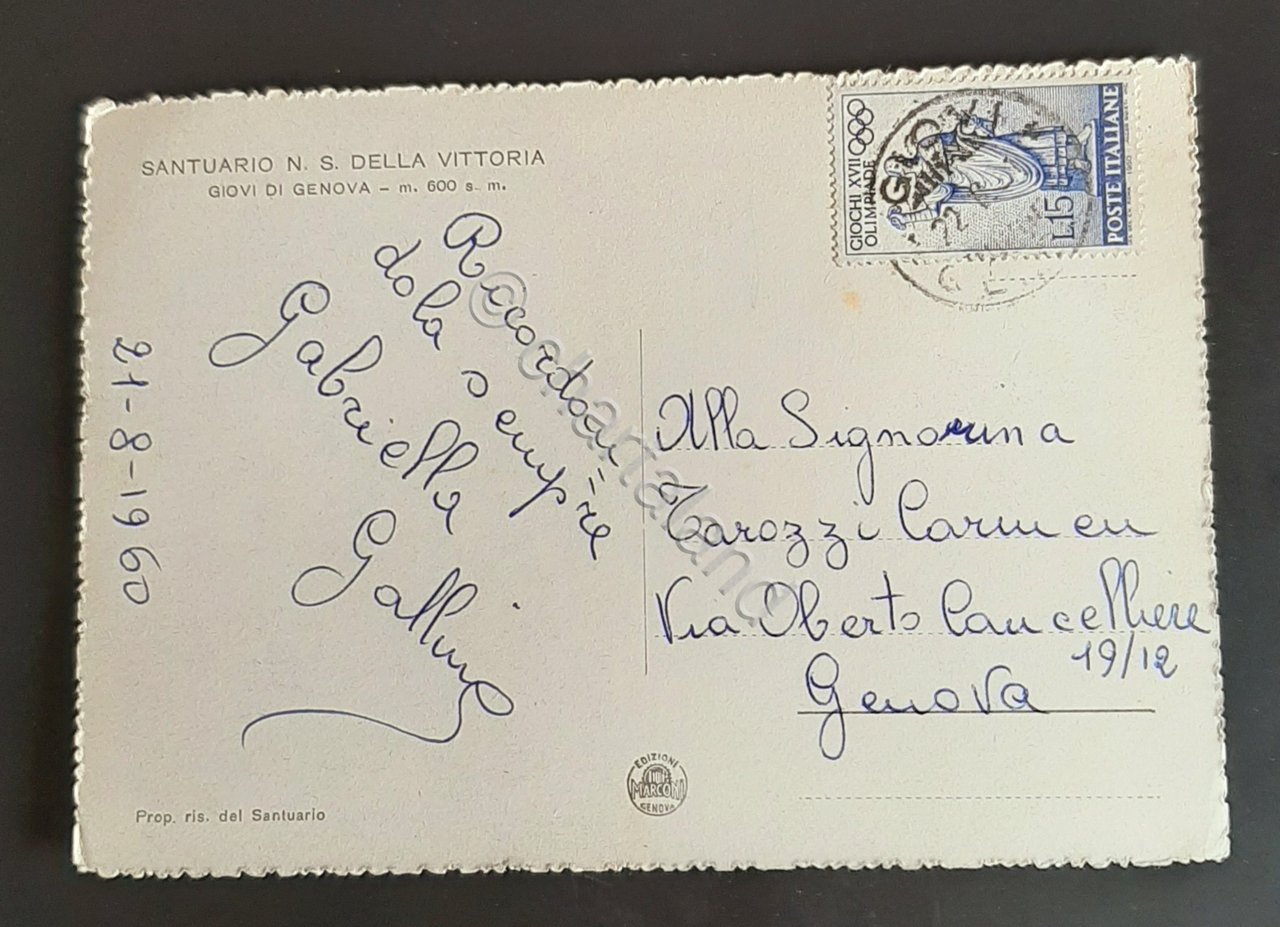 SANTUARIO N. S. DELLA VITTORIA
GIOVI DI GENOVA – m. 600 s. m.
Riccordan=
dola sempre
Gabriella
Gallino
21-8-1960
Prop. ris. del Santuario
EDIZIONI
MARCONI
GENOVA
GIOCHI XVII
OLIMPIADE
L.15
POSTE ITALIANE
1960
GIOVI
22
Alla Signorina
Tarozzi Carmen
Via Oberto Cancelliere
19/12
Genova
© chartaland